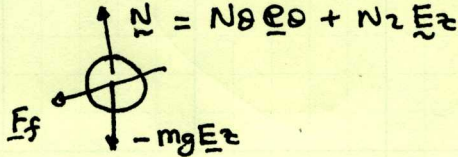 N = Nθ eθ + Nz Ez
Ff
-mg Ez